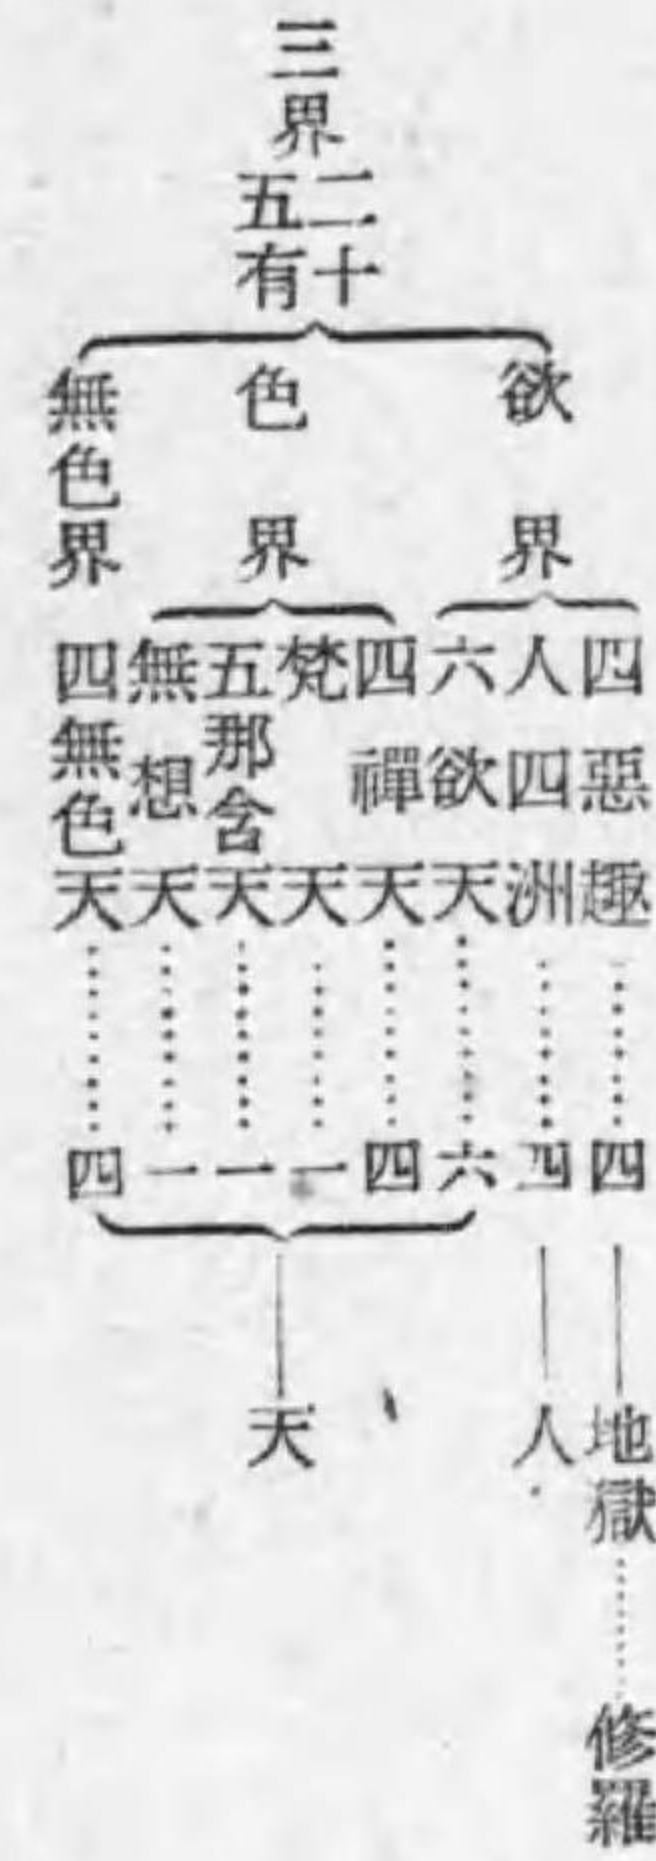 三界二十五有
欲界
色界
無色界
四惡趣……四──地獄……修羅
人四洲……四──人
六欲天……六
四禪天……四
梵天……一
五那含天……一
無想天……一
四無色天……四
天